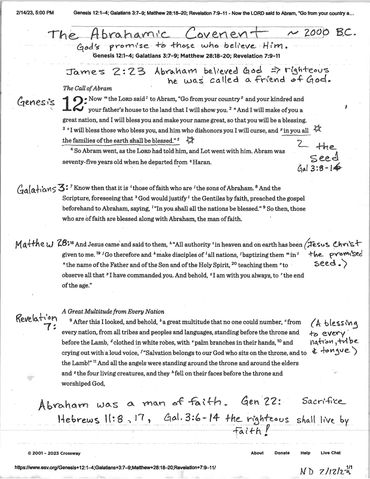 2/14/23, 5:00 PM Genesis 12:1–4; Galatians 3:7–9; Matthew 28:18–20; Revelation 7:9–11 - Now the LORD said to Abram, "Go from your country a…
The Abrahamic Covenent ~ 2000 BC.
God's promise to those who believe Him.
Genesis 12:1–4; Galatians 3:7–9; Matthew 28:18–20; Revelation 7:9–11
James 2:23 Abraham believed God ⇒ righteous
he was called a friend of God.
The Call of Abram
Genesis 12:1 Now the LORD said to Abram, "Go from your country and your kindred and
your father's house to the land that I will show you. 2 And I will make of you a
great nation, and I will bless you and make your name great, so that you will be a blessing.
3 I will bless those who bless you, and him who dishonors you I will curse, and in you all
the families of the earth shall be blessed."
4 So Abram went, as the LORD had told him, and Lot went with him. Abram was
seventy-five years old when he departed from Haran.
the
seed
Gal 3:8-14
Galatians 3: 7 Know then that it is those of faith who are the sons of Abraham. 8 And the
Scripture, foreseeing that God would justify the Gentiles by faith, preached the gospel
beforehand to Abraham, saying, "In you shall all the nations be blessed." 9 So then, those
who are of faith are blessed along with Abraham, the man of faith.
Matthew 28: 18 And Jesus came and said to them, "All authority in heaven and on earth has been
given to me. 19 Go therefore and make disciples of all nations, baptizing them in
the name of the Father and of the Son and of the Holy Spirit, 20 teaching them to
observe all that I have commanded you. And behold, I am with you always, to the end
of the age."
(Jesus Christ
the promised
seed.)
A Great Multitude from Every Nation
Revelation 7: 9 After this I looked, and behold, a great multitude that no one could number, from
every nation, from all tribes and peoples and languages, standing before the throne and
before the Lamb, clothed in white robes, with palm branches in their hands, 10 and
crying out with a loud voice, "Salvation belongs to our God who sits on the throne, and to
the Lamb!" 11 And all the angels were standing around the throne and around the elders
and the four living creatures, and they fell on their faces before the throne and
worshiped God,
(A blessing
to every
nation, tribe
& tongue)
Abraham was a man of faith. Gen 22: Sacrifice
Hebrews 11:8, 17, Gal. 3:6-14 the righteous shall live by
faith!
© 2001 – 2023 Crossway About Donate Help Live Chat
https://www.esv.org/Genesis+12:1–4;Galatians+3:7–9;Matthew+28:18–20;Revelation+7:9–11/ 1/1